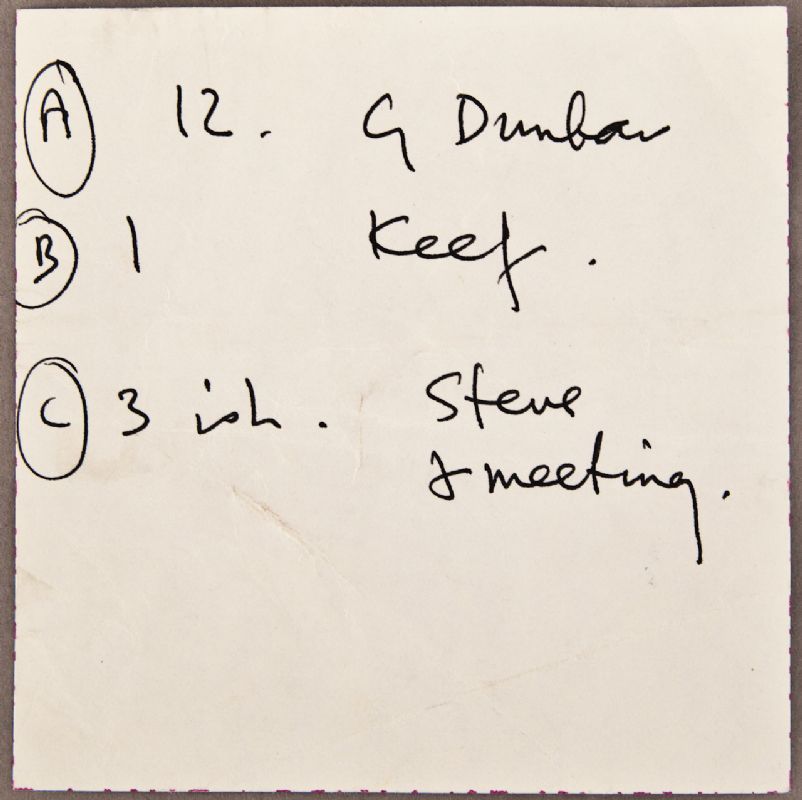 A 12. G Dunbar
B 1 Keef.
C 3 ish. Steve
& meeting.